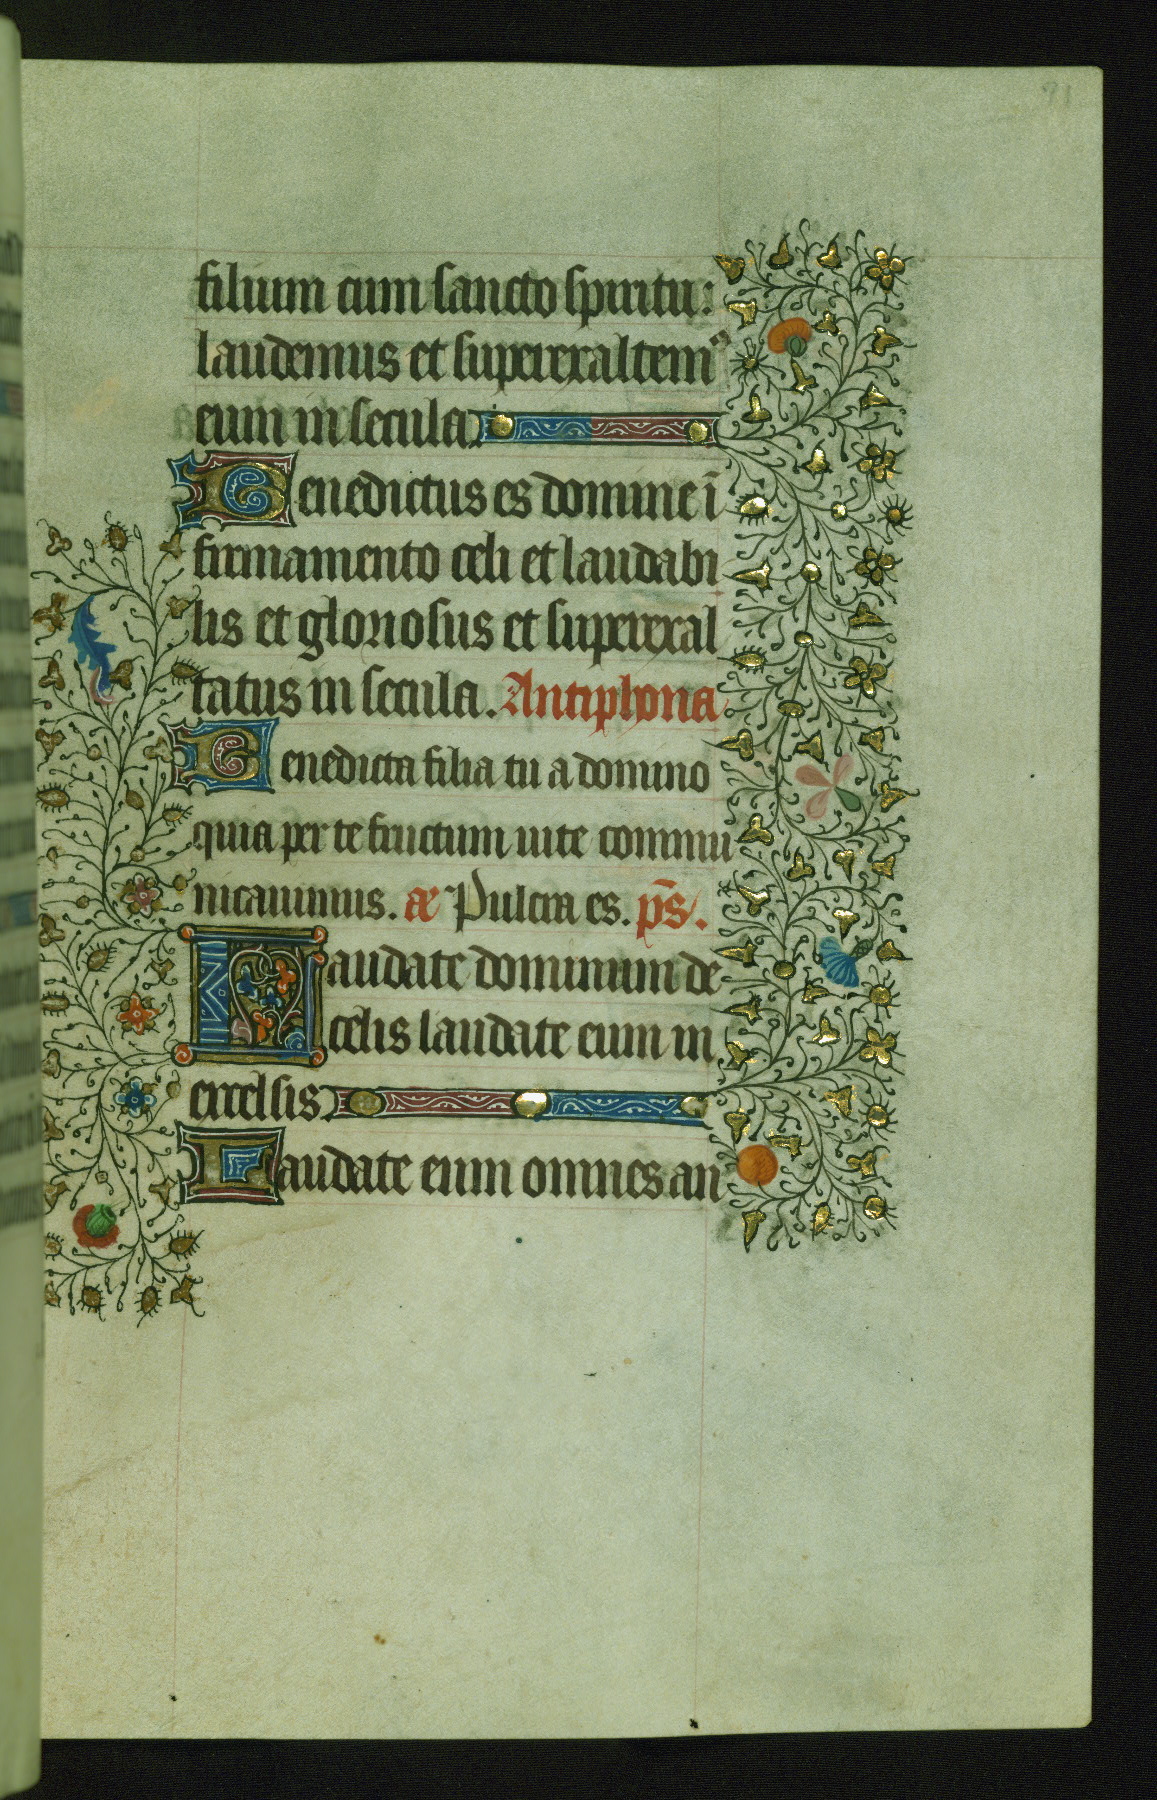 91
filium cum sancto spiritu:
laudemus et superexaltem9
eum in secula
Benedictus es domine ī
firmamento celi et laudabi
lis et gloriosus et superexal
tatus in secula. Antiphona
Benedicta filia tu a domino
quia per te fructum uite commu
nicauimus. æ Pulcra es. p̄s.
Laudate dominum de
celis laudate eum in
excelsis
Laudate eum omnes an